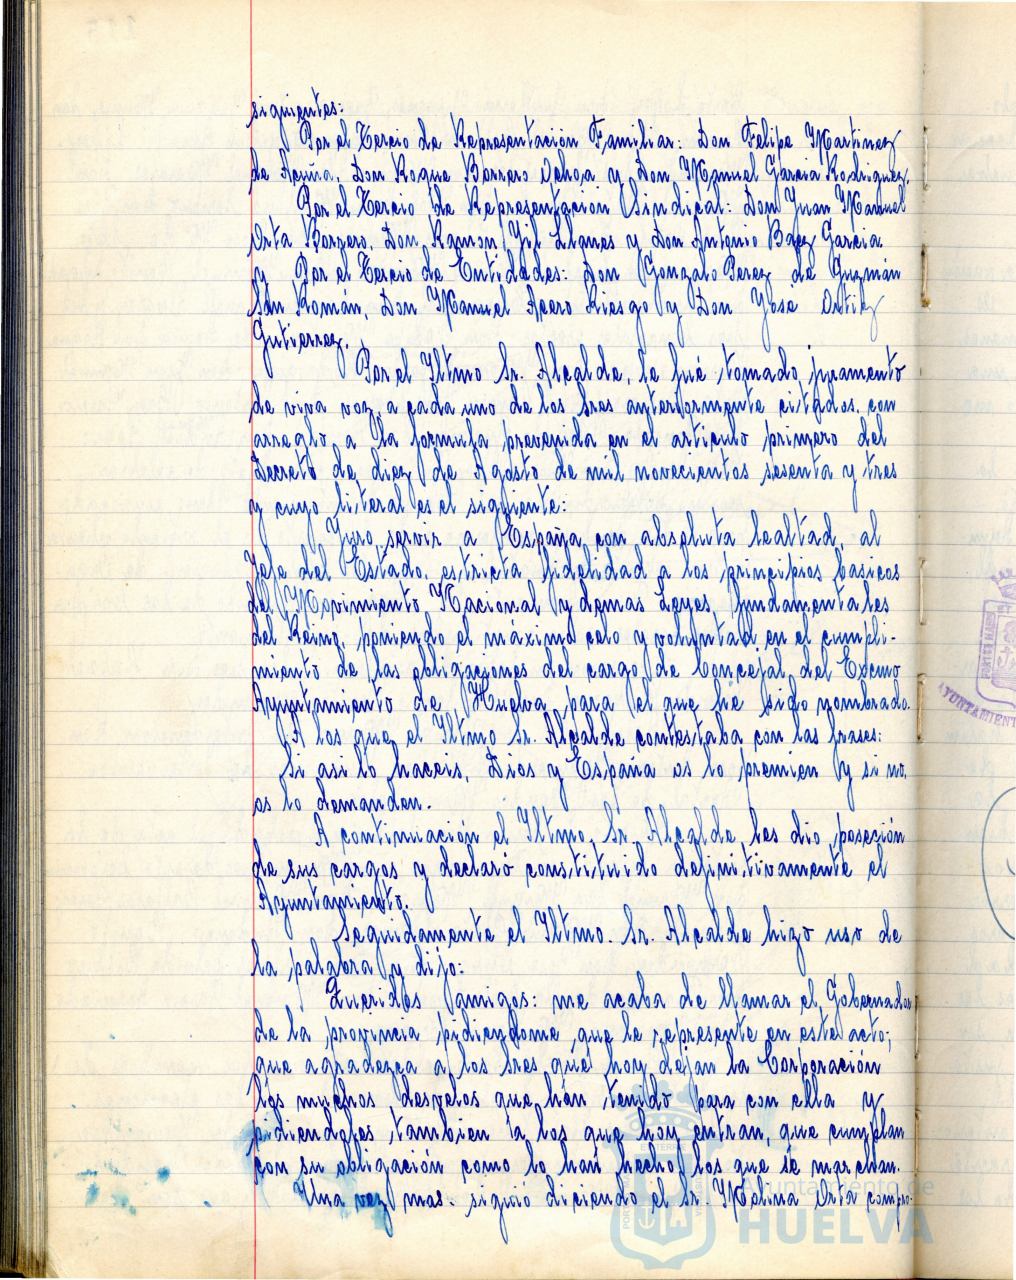 siguientes:
Por el Tercio de Representación Familiar: Don Felipe Martinez
de Acuña, Don Roque Borrero Ochoa y Don Manuel Garcia Rodriguez.
Por el Tercio de Representación Sindical: Don Juan Manuel
Orta Borrero, Don Ramon Gil Llanes y Don Antonio Baez Garcia
y Por el Tercio de Entidades: Don Gonzalo Perez de Guzmán
San Román, Don Manuel Acero Riesgo y Don José Ortiz
Gutierrez.
Por el Iltmo Sr. Alcalde, le fué tomado juramento
de viva voz a cada uno de los Sres anteriormente citados, con
arreglo a la formula prevenida en el articulo primero del
Decreto de diez de Agosto de mil novecientos sesenta y tres
y cuyo literal es el siguiente:
Juro servir a España con absoluta lealtad, al
Jefe del Estado, estricta fidelidad a los principios basicos
del Movimiento Nacional y demas Leyes fundamentales
del Reino, poniendo el máximo celo y voluntad en el cumpli-
miento de las obligaciones del cargo de Concejal del Excmo
Ayuntamiento de Huelva para el que he sido nombrado.
A los que el Iltmo Sr. Alcalde contestaba con las frases:
Si asi lo haceis, Dios y España os lo premien y si no,
os lo demanden.
A continuación el Iltmo. Sr. Alcalde les dio posesión
de sus cargos y declaró constituido definitivamente el
Ayuntamiento.
Seguidamente el Iltmo. Sr. Alcalde hizo uso de
la palabra y dijo:
Queridos amigos: me acaba de llamar el Gobernador
de la provincia pidiendome que le represente en este acto;
que agradezca a los Sres que hoy dejan la Corporación
los muchos desvelos que han tenido para con ella y
pidiendoles tambien a los que hoy entran, que cumplan
con su obligación como lo han hecho los que se marchan.
Una vez mas- siguió diciendo el Sr. Molina Orta compro-
Ayuntamiento de
HUELVA